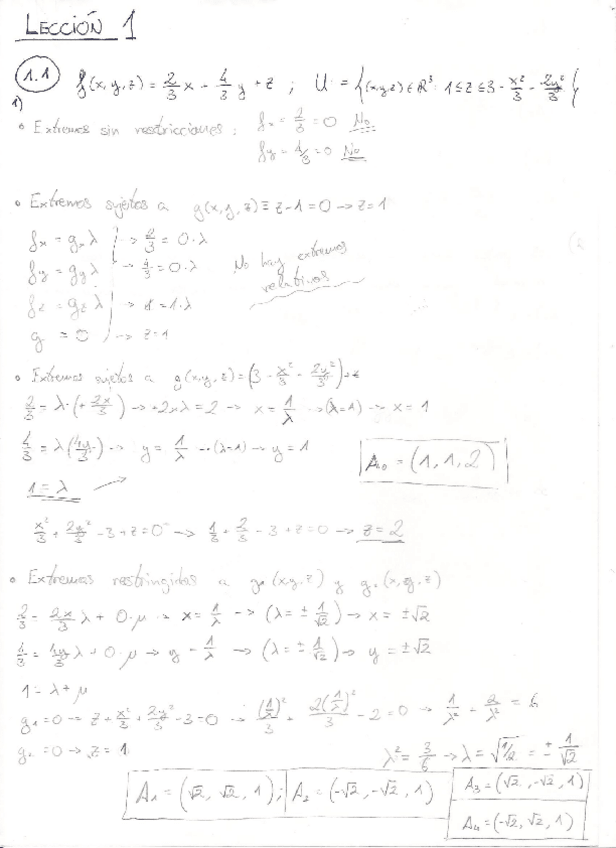 LECCIÓN 1
1.1 f(x,y,z) = 2/3 x - 4/3 y + z ; U = {(x,y,z) ∈ ℝ³ : 1 ≤ z ≤ 3 - x²/3 - 2y²/3}
1)
• Extremos sin restricciones: fx = 2/3 = 0 No
fy = 4/3 = 0 No
• Extremos sujetos a g(x,y,z) ≡ z-1 = 0 → z = 1
fx = gx λ → 2/3 = 0·λ
fy = gy λ → 4/3 = 0·λ
No hay extremos relativos
fz = gz λ → 1 = 1·λ
g = 0 → z = 1
• Extremos sujetos a g(x,y,z) = (3 - x²/3 - 2y²/3) - z
2/3 = λ·(+ 2x/3) → +2xλ = 2 → x = 1/λ → (λ=1) → x = 1
4/3 = λ(4y/3) → y = 1/λ → (λ=1) → y = 1
A₀ = (1, 1, 2)
1 = λ
x²/3 + 2y²/3 - 3 + z = 0 → 1/3 + 2/3 - 3 + z = 0 → z = 2
• Extremos restringidos a (x,y,z) y (x,y,z)
2/3 = 2x/3 λ + 0·μ → x = 1/λ → (λ = ± 1/√2) → x = ±√2
4/3 = 4y/3 λ + 0·μ → y = 1/λ → (λ = ± 1/√2) → y = ±√2
1 = λ + μ
g₁ = 0 → z + x²/3 + 2y²/3 - 3 = 0 → (1/λ)²/3 + 2(1/λ)²/3 - 2 = 0 → 1/λ² + 2/λ² = 6
= 0 → z = 1
λ² = 3/6 → λ = √1/2 = ± 1/√2
A₁ = (√2, √2, 1); A₂ = (-√2, -√2, 1)
A₃ = (√2, -√2, 1)
A₄ = (-√2, √2, 1)